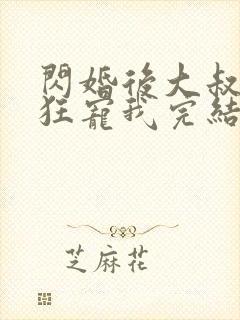 閃婚後大叔
狂寵我完結
芝麻花